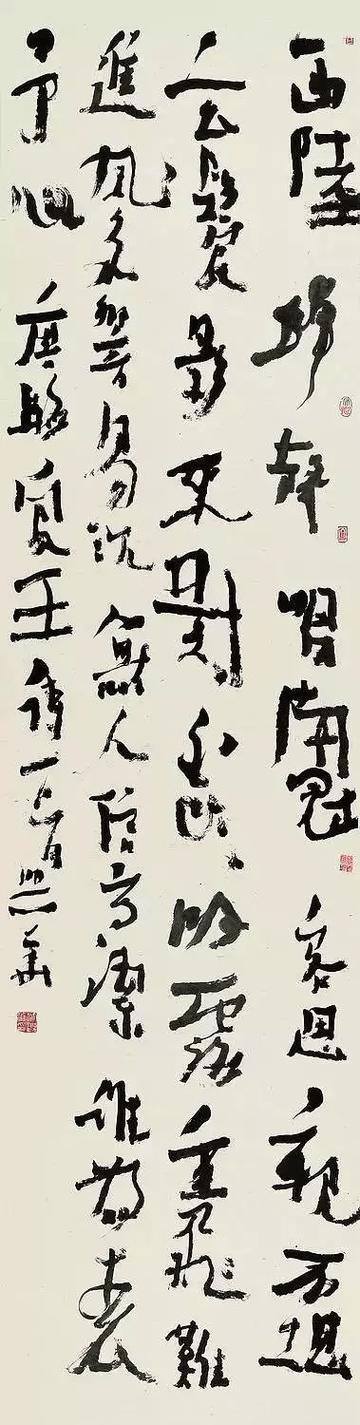 西陸蟬聲唱南冠客思不堪
玄鬢影来對白頭吟露重飛難
進風多響易沉無人信高潔誰為表
予心 唐駱賓王詩一首